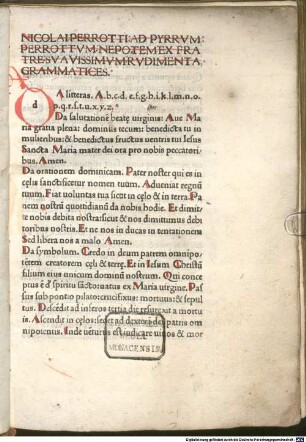 NICOLAI PERROTTI: AD PYRRVM
PERROTTVM: NEPOTEM EX FRA
TRE SVAVISSIMVM RVDIMENTA
GRAMMATICES.
d
A litteras. A.b.c.d.e.f.g.h.i.k.l.m.n.o.
p.q.r.s.t.u.x.y.z.
Da salutationē beatę uirginis: Aue Ma
ria gratia plena: dominus tecum: benedicta tu in
mulieribus: & benedictus fructus uentris tui Iesus
Sancta Maria mater dei ora pro nobis peccatori
bus. Amen.
Da orationem dominicam. Pater noster qui es in
celis sanctificetur nomen tuum. Adueniat regnū
tuum. Fiat uoluntas tua sicut in celo & in terra. Pa
nem nostrū quotidianū da nobis hodie. Et dimit
te nobis debita nostra sicut & nos dimittimus debi
toribus nostris. Et ne nos in ducas in tentationem
Sed libera nos a malo Amen.
Da symbolum. Credo in deum patrem omnipo
tētem creatorem cęli & terrę. Et in Iesum Christū
filium eius unicum dominū nostrum. Qui conce
ptus ē d' spiritu sācto natus ex Maria uirgine. Pas
sus sub pontio pilato crucifixus: mortuus: & sepul
tus. Descēdit ad inferos tertia die resurrexit a mortu
is. Ascendit in celos: sedet ad dexterā dei patris om
nipotentis. Inde uēturus est iudicare uiuos & mor
MONACENSIS